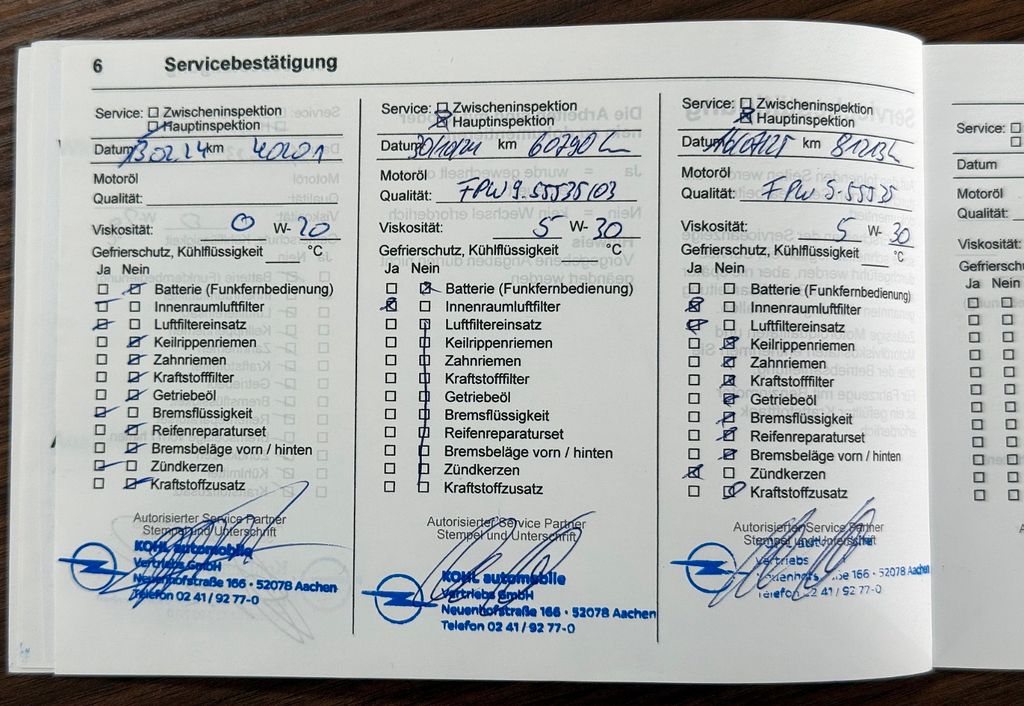 6 Servicebestätigung
Service: Zwischeninspektion
Hauptinspektion
Datum 13.02.24 km 40201
Motoröl
Qualität:
Viskosität: 0 W- 20
Gefrierschutz, Kühlflüssigkeit °C
Ja Nein
Batterie (Funkfernbedienung)
Innenraumluftfilter
Luftfiltereinsatz
Keilrippenriemen
Zahnriemen
Kraftstofffilter
Getriebeöl
Bremsflüssigkeit
Reifenreparaturset
Bremsbeläge vorn / hinten
Zündkerzen
Kraftstoffzusatz
Autorisierter Service Partner
Stempel und Unterschrift
KOHL automobile
Vertriebs GmbH
Neuenhofstraße 166 • 52078 Aachen
Telefon 02 41 / 92 77-0
Service: Zwischeninspektion
Hauptinspektion
Datum km 60790 km
Motoröl
Qualität: FPW 9.55535/03
Viskosität: 5 W- 30
Gefrierschutz, Kühlflüssigkeit °C
Ja Nein
Batterie (Funkfernbedienung)
Innenraumluftfilter
Luftfiltereinsatz
Keilrippenriemen
Zahnriemen
Kraftstofffilter
Getriebeöl
Bremsflüssigkeit
Reifenreparaturset
Bremsbeläge vorn / hinten
Zündkerzen
Kraftstoffzusatz
Autorisierter Service Partner
Stempel und Unterschrift
KOHL automobile
Vertriebs GmbH
Neuenhofstraße 166 • 52078 Aachen
Telefon 02 41 / 92 77-0
Service: Zwischeninspektion
Hauptinspektion
Datum km
Motoröl
Qualität: FPW 9.55535
Viskosität: 5 W- 30
Gefrierschutz, Kühlflüssigkeit °C
Ja Nein
Batterie (Funkfernbedienung)
Innenraumluftfilter
Luftfiltereinsatz
Keilrippenriemen
Zahnriemen
Kraftstofffilter
Getriebeöl
Bremsflüssigkeit
Reifenreparaturset
Bremsbeläge vorn / hinten
Zündkerzen
Kraftstoffzusatz
Autorisierter Service Partner
Stempel und Unterschrift
Vertriebs
166 • 52078 Aachen
Telefon 02 41 / 92 77-0
Service:
Datum
Motoröl
Qualität:
Viskosität:
Ja Nein